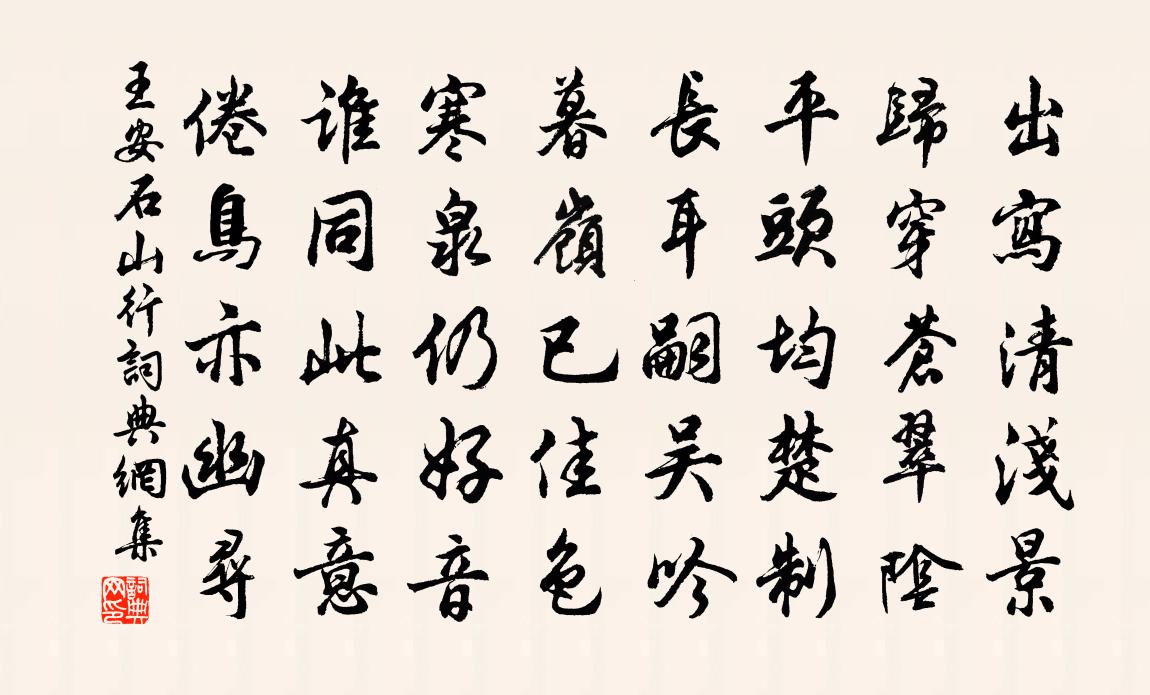 出寫清淺景
歸穿蒼翠陰
平頭均楚制
長耳嗣吳吟
暮嶺已佳色
寒泉仍好音
誰同此真意
倦鳥亦幽尋
王安石山行詞典網集
詞典
网印